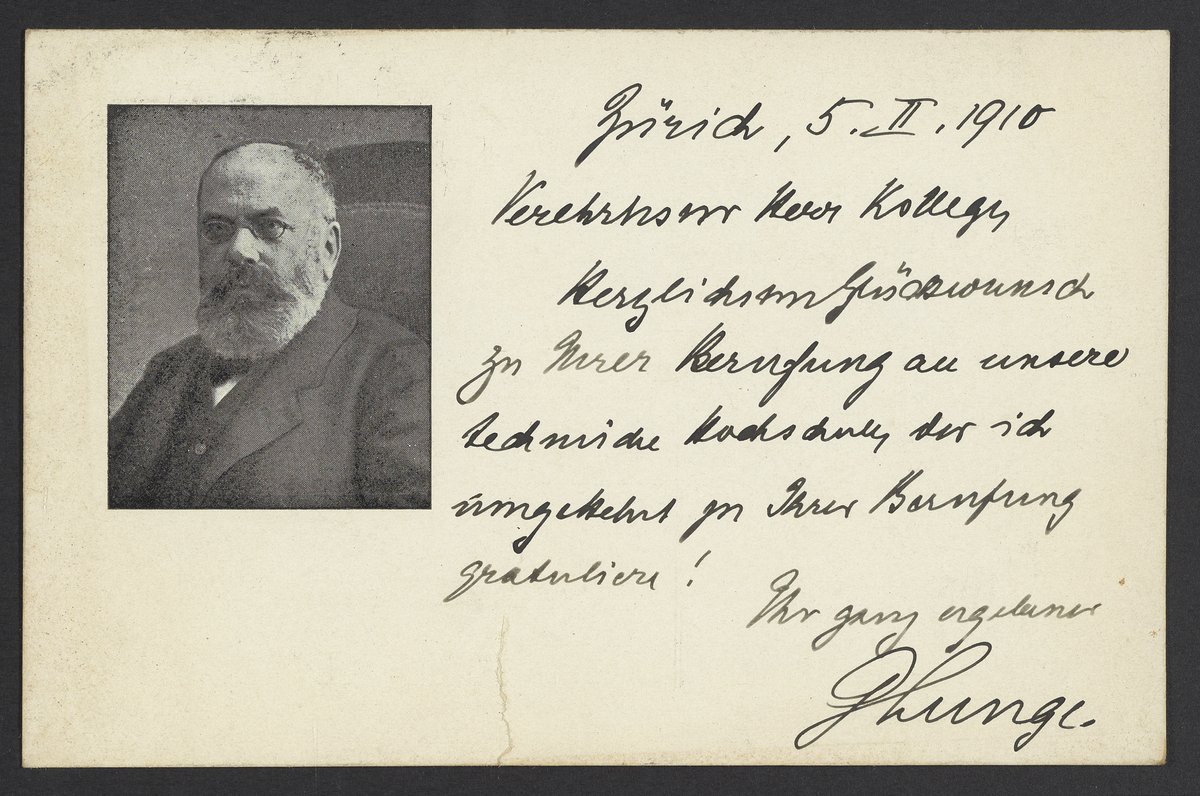 Zürich, 5. II. 1910
Verehrtester Herr Kollege,
Herzlichsten Glückwunsch
zu Ihrer Berufung an unsere
technische Hochschule, der ich
umgekehrt zu Ihrer Berufung
gratuliere!
Ihr ganz ergebener
G Lunge.